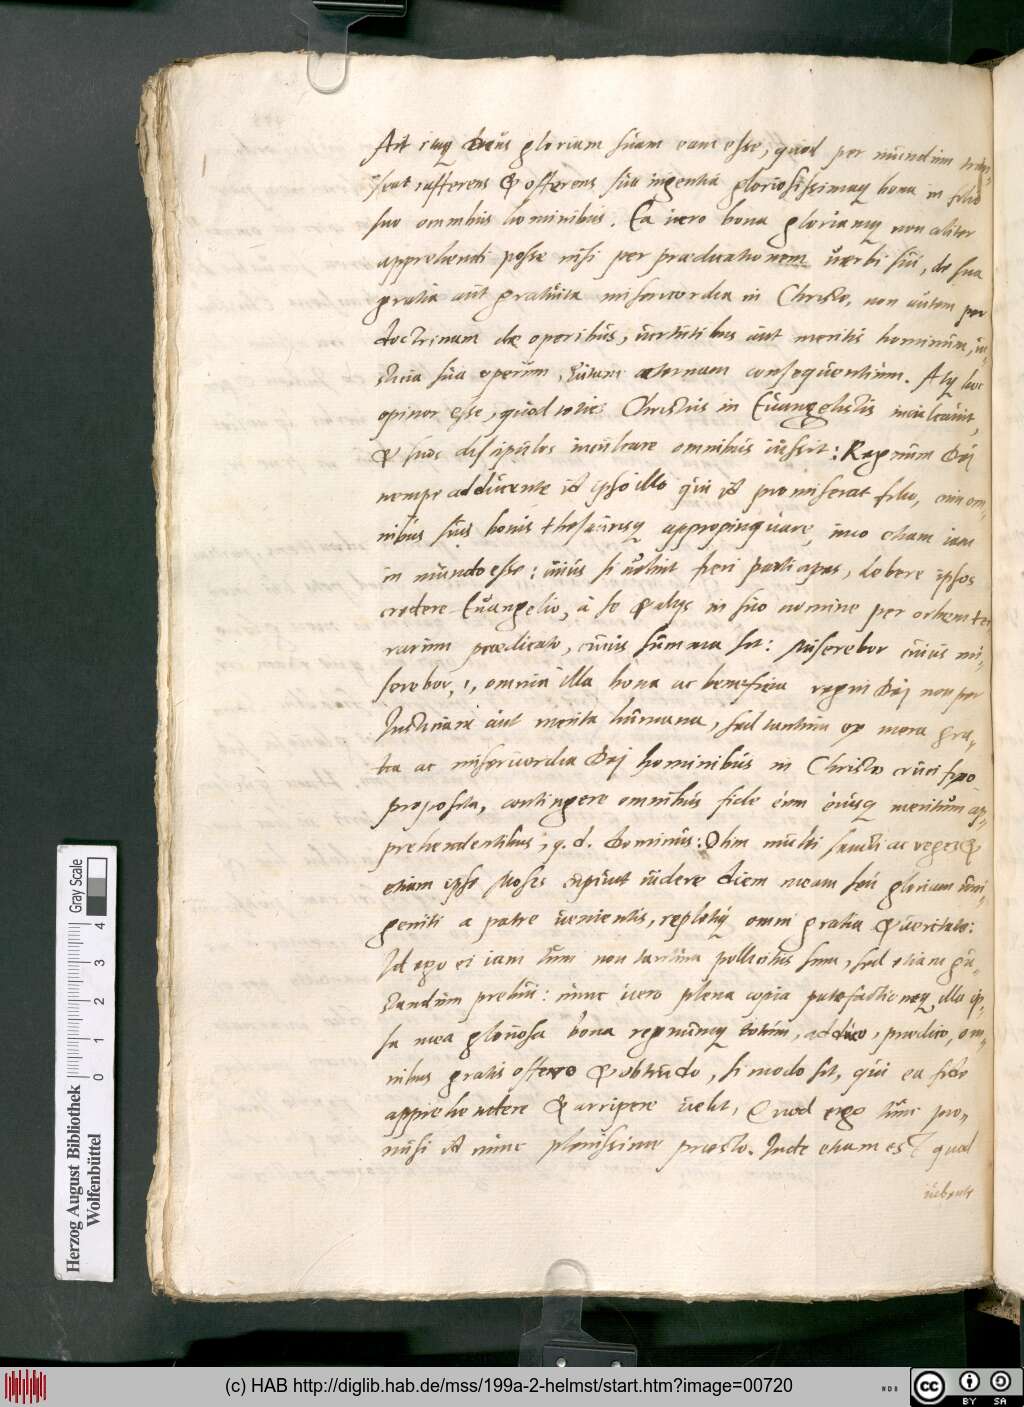 Ait itaq deus gloriam suam eam esse, quod per mundum tran-
seat rufferens & offerens sua ingentia gloriosissimaq bona in filio
suo omnibus hominibus. Ea vero bona gloriamq non aliter
apprehendi posse nisi per praedicationem verbi sui, de sua
gratia aut gratuita misericordia in Christo, non autem per
doctrinam de operibus, virtutibus aut meritis hominum, iu-
sticia sua operum, vitam aeternam consequentium. Atq hoc
opinor esse, quod toties Christus in Euangelistis inculcauit,
& suos discipulos inculcare omnibus iussit: Regnum Dei
nempe adducente id ipso illo qui id promiserat filio, cum om-
nibus suis bonis thesaurisq appropinquare, imo etiam iam
in mundo esse: cuius si uelint fieri participes, debere ipsos
credere Euangelio, à se & alijs in suo nomine per orbem ter
rarum praedicato, cuius summa sit: Miserebor cuius mi-
serebor, .i. omnia illa bona ac beneficia regni Dei non per
Iusticiam aut merita humana, sed tantum ex mera gra-
tia ac misericordia Dei hominibus in Christo crucifixo
proposita, contingere omnibus fide eum eiusq meritum ap-
prehendentibus, q. d. Dominus: Olim multi sancti ac reges &
etiam ipse Moses cupiuit uidere diem meam seu gloriam uni-
geniti a patre uenientis, repletiq omni gratia & ueritate:
Id ego ei iam tum non tantum pollicitus sum, sed etiam gu-
standum prebui: nunc uero plena copia patefactioneq illa ip-
sa mea gloriosa bona regnumq totum, adduco, praedico, om-
nibus gratis offero & obtrudo, si modo sit, qui ea fide
apprehendere & arripere uelit, Quod ergo tunc pro-
misi id nunc plenissime praesto. Inde etiam est quod
iubente
Herzog August Bibliothek
Wolfenbüttel
Gray Scale
0 1 2 3 4
(c) HAB http://diglib.hab.de/mss/199a-2-helmst/start.htm?image=00720
cc BY SA